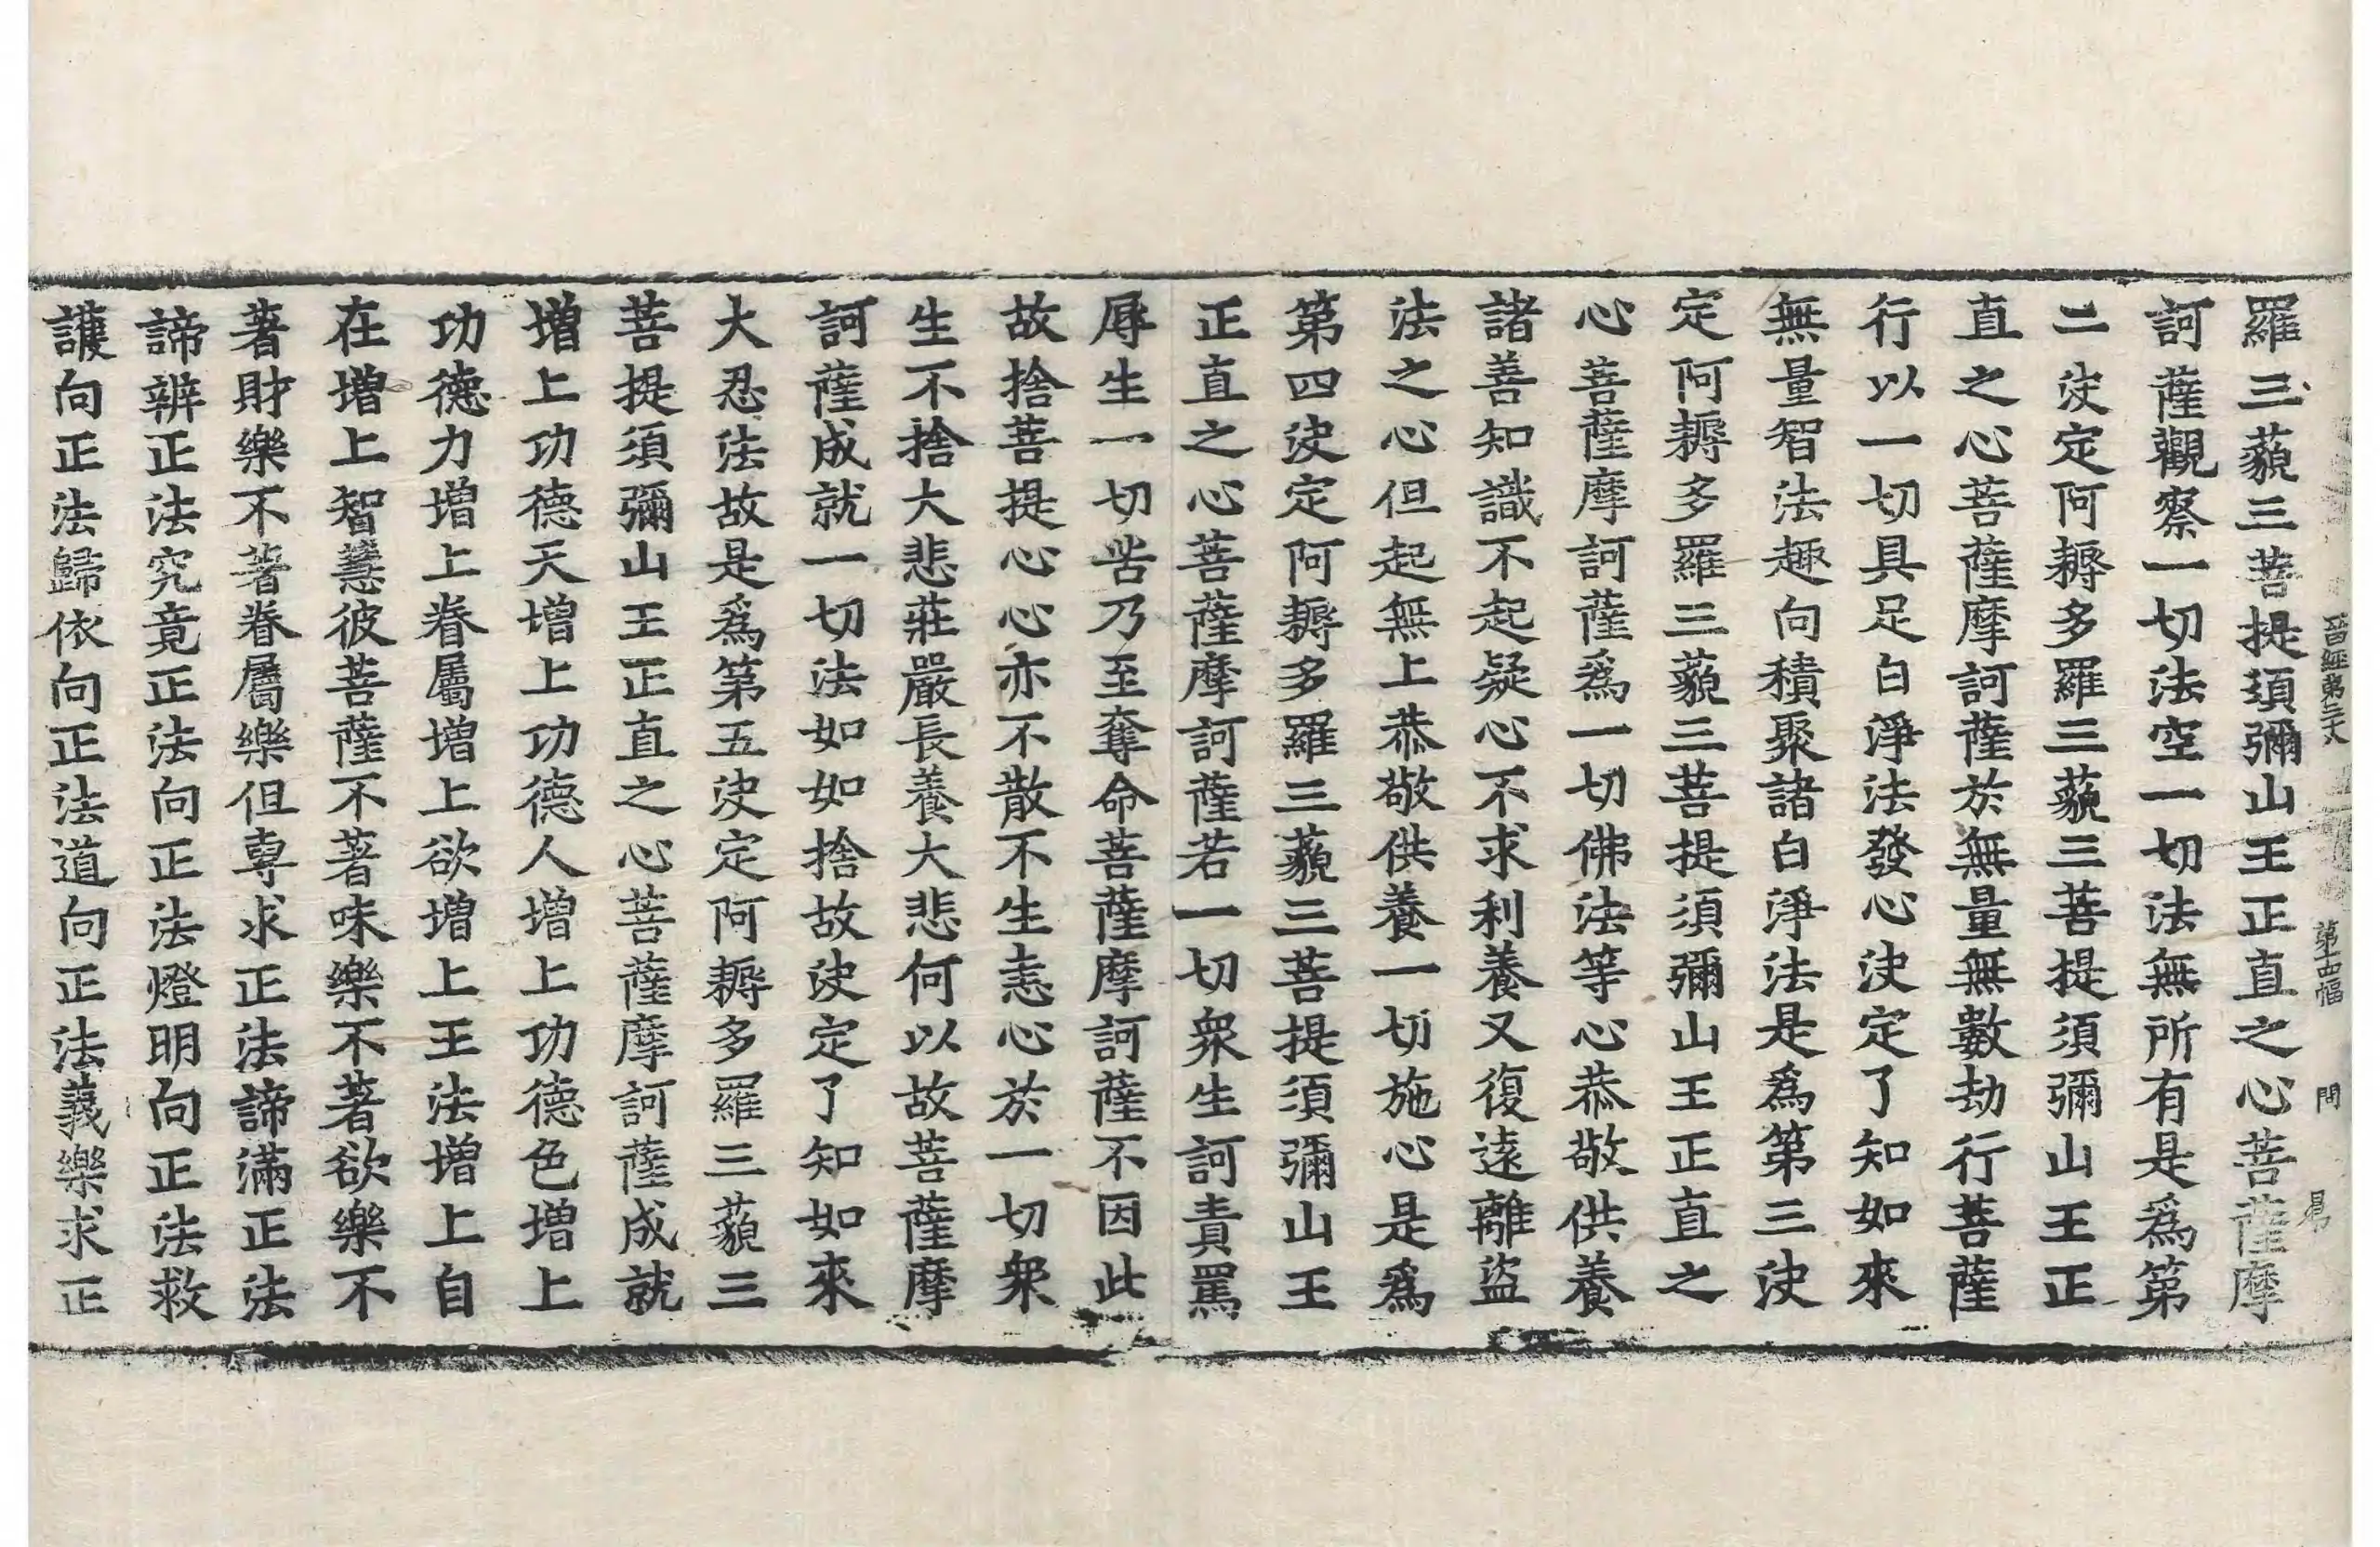 晉經第三十八 第十四幅 問 易
羅三藐三菩提須彌山王正直之心菩薩摩
訶薩觀察一切法空一切法無所有是爲第
二決定阿耨多羅三藐三菩提須彌山王正
直之心菩薩摩訶薩於無量無數劫行菩薩
行以一切具足白淨法發心決定了知如來
無量智法趣向積聚諸白淨法是爲第三決
定阿耨多羅三藐三菩提須彌山王正直之
心菩薩摩訶薩爲一切佛法等心恭敬供養
諸善知識不起疑心不求利養又復遠離盜
法之心但起無上恭敬供養一切施心是爲
第四決定阿耨多羅三藐三菩提須彌山王
正直之心菩薩摩訶薩若一切衆生訶責罵
辱生一切苦乃至奪命菩薩摩訶薩不因此
故捨菩提心心亦不散不生恚心於一切衆
生不捨大悲莊嚴長養大悲何以故菩薩摩
訶薩成就一切法如如捨故決定了知如來
大忍法故是爲第五決定阿耨多羅三藐三
菩提須彌山王正直之心菩薩摩訶薩成就
增上功德天增上功德人增上功德色增上
功德力增上眷屬增上欲增上王法增上自
在增上智慧彼菩薩不著味樂不著欲樂不
著財樂不著眷屬樂但專求正法諦滿正法
諦辨正法究竟正法向正法燈明向正法救
護向正法歸依向正法道向正法義樂求正